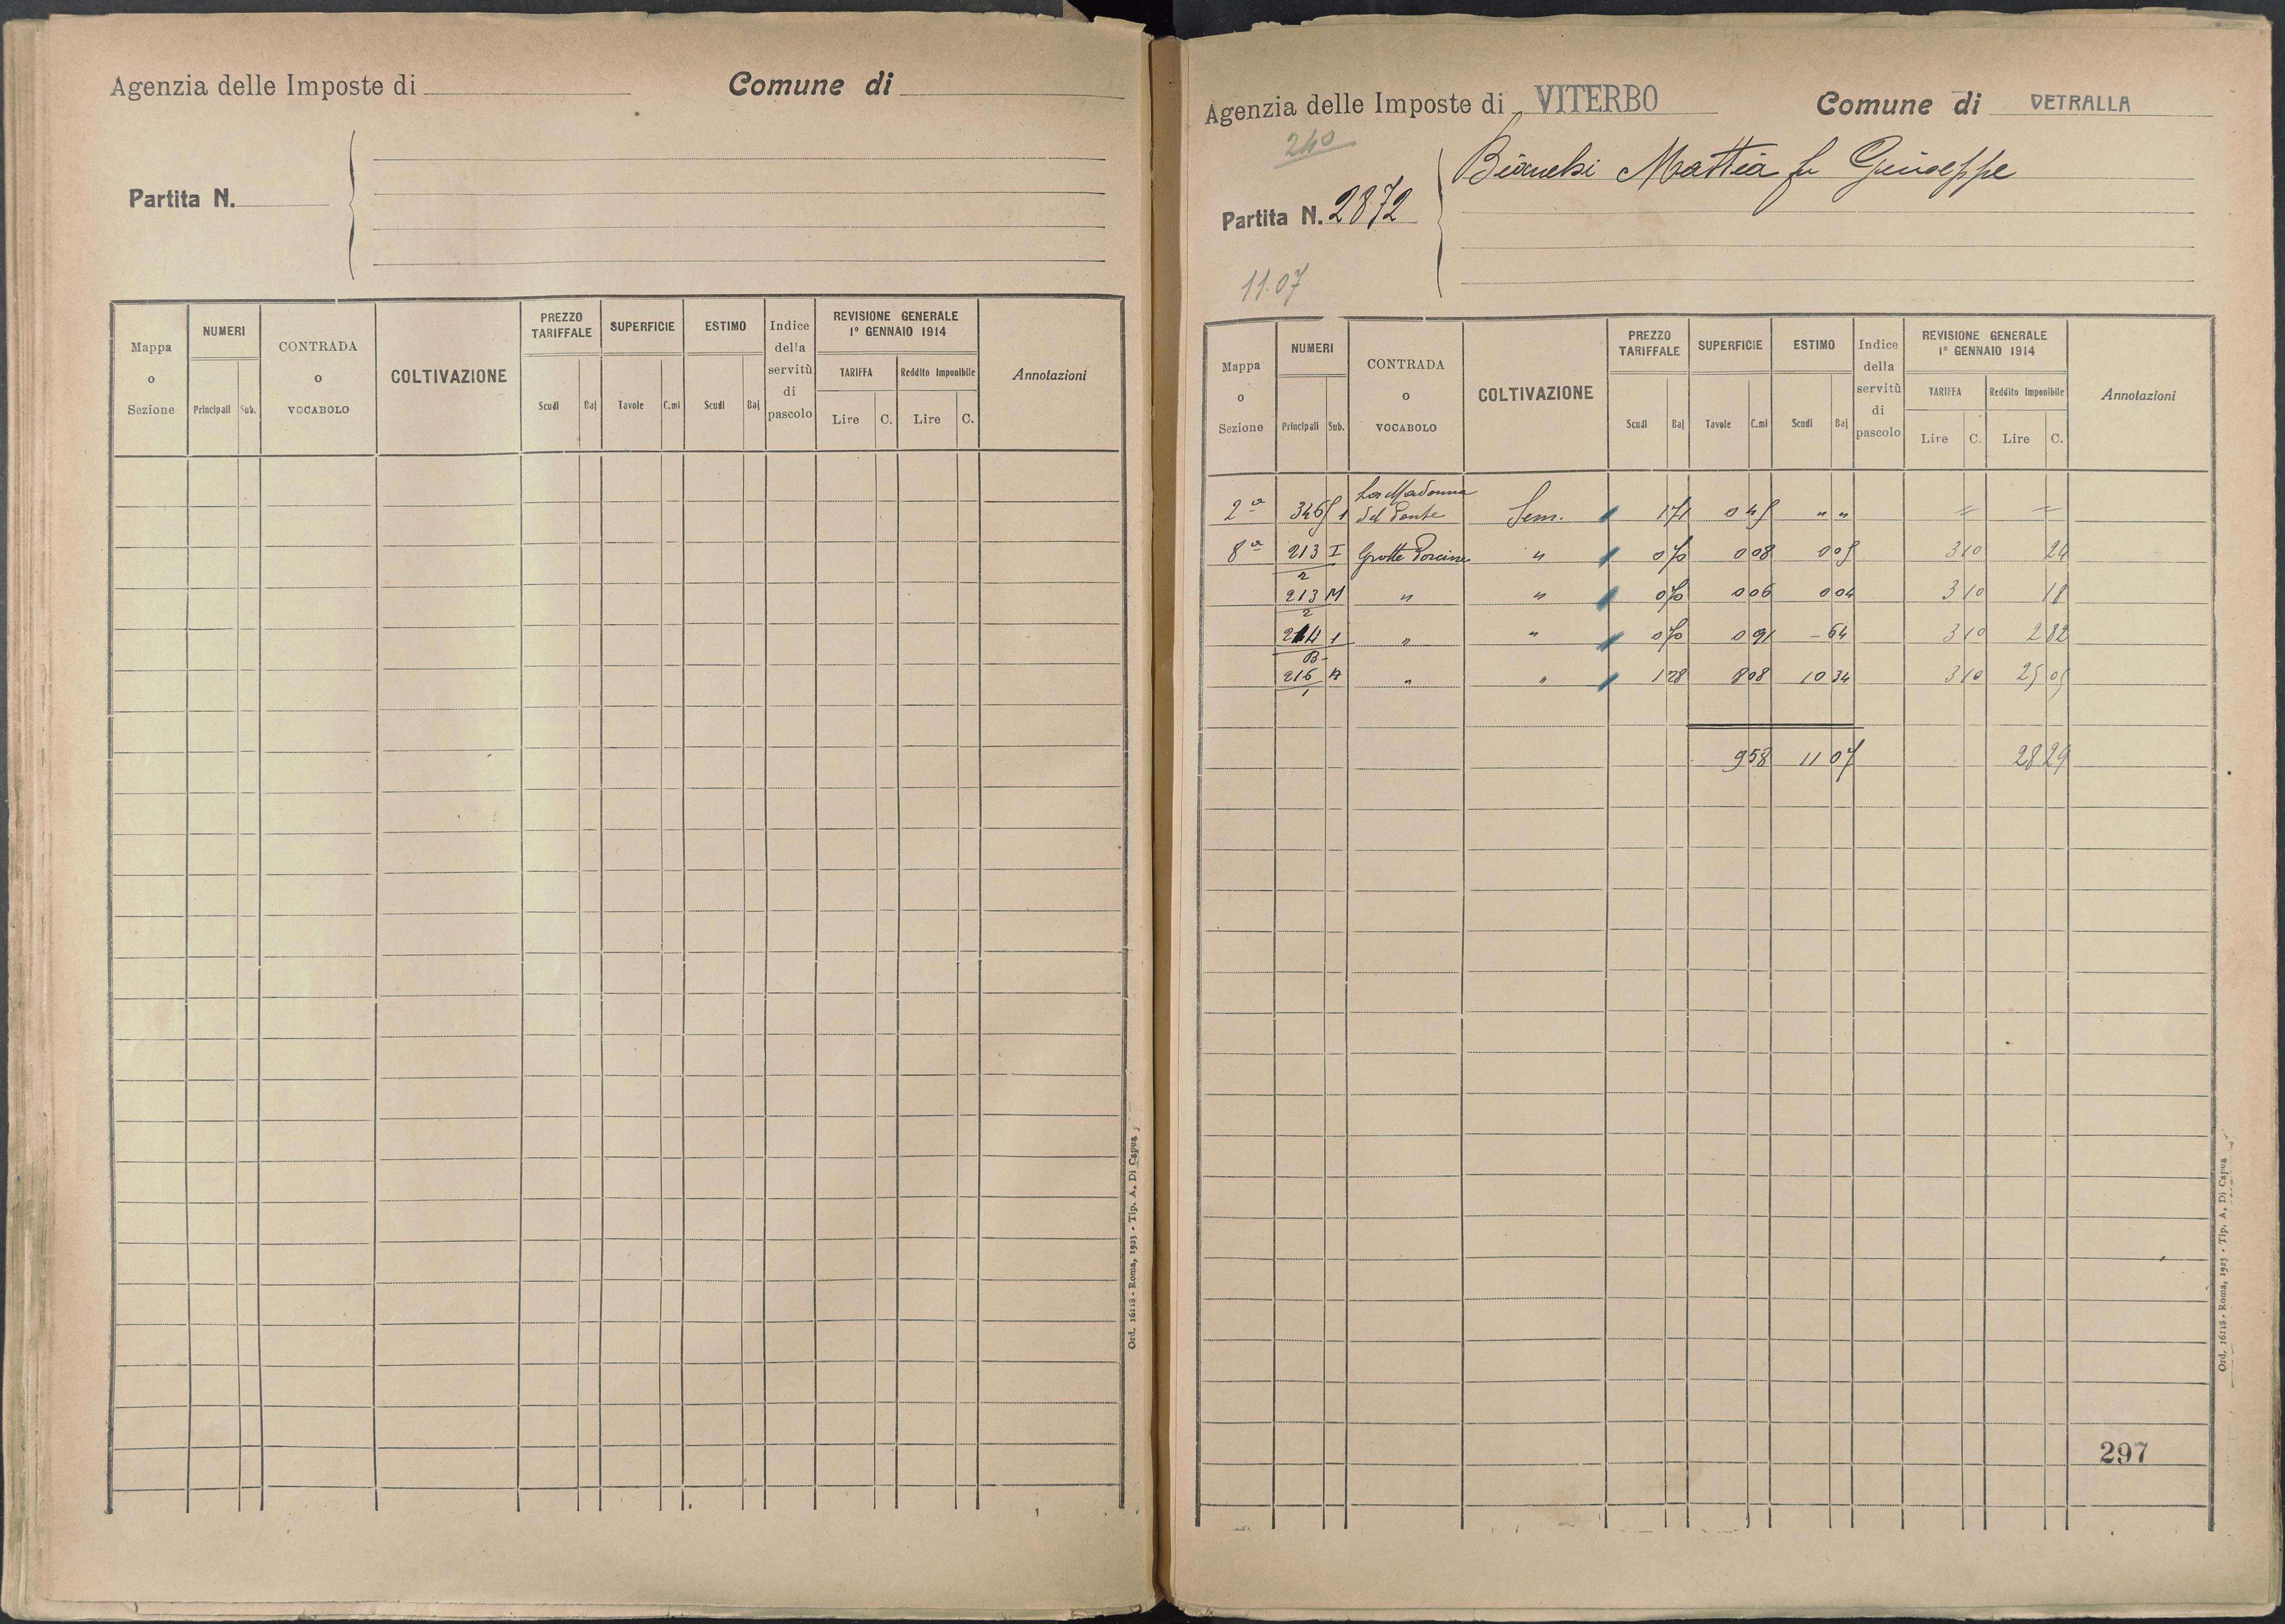 Agenzia delle Imposte di Comune di
Partita N.
Mappa o Sezione NUMERI CONTRADA o VOCABOLO COLTIVAZIONE PREZZO TARIFFALE SUPERFICIE ESTIMO Indice della servitù di pascolo REVISIONE GENERALE 1º GENNAIO 1914 Annotazioni
TARIFFA Reddito Imponibile
Principali Sub. Scudi Baj Tavole C.mi Scudi Baj Lire C. Lire C.
Ord. 16118 - Roma, 1923 - Tip. A. Di Capua
Agenzia delle Imposte di VITERBO Comune di VETRALLA
240
Bianchi Mattia fu Giuseppe
Partita N. 2872
11.07
Mappa o Sezione NUMERI CONTRADA o VOCABOLO COLTIVAZIONE PREZZO TARIFFALE SUPERFICIE ESTIMO Indice della servitù di pascolo REVISIONE GENERALE 1º GENNAIO 1914 Annotazioni
TARIFFA Reddito Imponibile
Principali Sub. Scudi Baj Tavole C.mi Scudi Baj Lire C. Lire C.
La Madonna
2ª 3465 1 del Ponte Sem. 1 71 0 45 " " = =
8ª 213 I Grotte Porcine " 0 70 0 08 0 05 3 10 24
2
213 M " " 0 70 0 06 0 04 3 10 18
2
214 1 " " 0 70 0 91 - 64 3 10 2 82
B
216 A " " 1 28 8 08 10 34 3 10 25 05
1
9 58 11 07 28 29
297
Ord. 16118 - Roma, 1923 - Tip. A. Di Capua